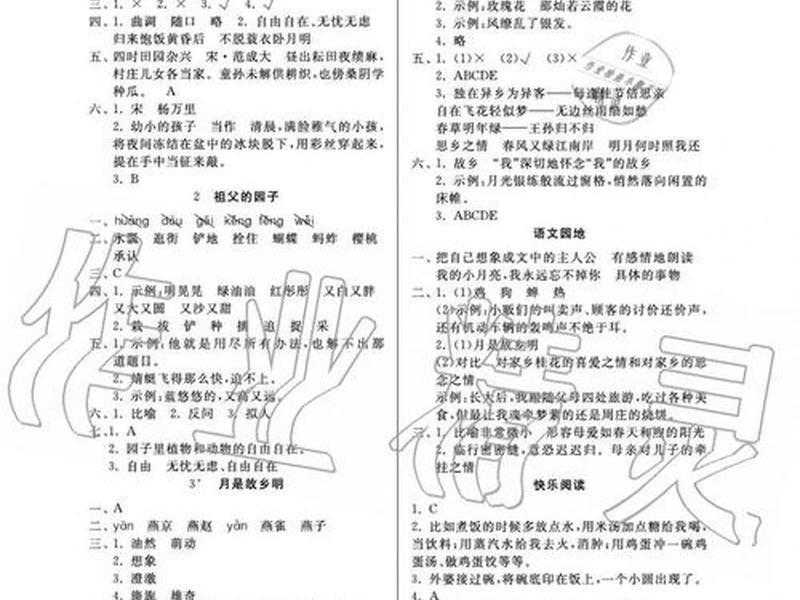 三、1. × 2. × 3. √ 4. √
四、1. 曲调 随口 略 2. 自由自在、无忧无虑
归来饱饭黄昏后 不脱蓑衣卧月明
五、四时田园杂兴 宋·范成大 昼出耘田夜绩麻,
村庄儿女各当家。童孙未解供耕织,也傍桑阴学
种瓜。 A
六、1. 宋 杨万里
2. 幼小的孩子 当作 清晨,满脸稚气的小孩,
将夜间冻结在盆中的冰块脱下,用彩丝穿起来,
提在手中当钲来敲。
3. B
2 祖父的园子
一、huāng
二、水瓢 逛街 铲地 拴住 蝴蝶 蚂蚱 樱桃
承认
三、C
四、1. 示例:明晃晃 绿油油 红彤彤 又白又胖
又大又圆 又沙又甜
2. 栽 拔 铲 种 摘 追 捉 采
五、1. 示例:他就是用尽所有办法,也解不出那
道题目。
2. 蜻蜓飞得那么快,追不上。
3. 示例:蓝悠悠的,又高又远。
六、1. 比喻 2. 反问 3. 拟人
七、1. A
2. 园子里植物和动物的自由自在。
3. 自由 无忧无虑、自由自在
3* 月是故乡明
一、A
二、yān 燕京 燕赵 yàn 燕雀 燕子
三、1. 油然 萌动
2. 想象
3. 澄澈
4. 旖旎 雄奇
2. 示例:玫瑰花 那灿若云霞的花
3. 示例:风缭乱了银发。
4. 略
五、1. (1)× (2)√ (3)×
2. ABCDE
3. 独在异乡为异客——每逢佳节倍思亲
自在飞花轻似梦——无边丝雨细如愁
春草明年绿——王孙归不归
思乡之情 春风又绿江南岸 明月何时照我还
六、1. 故乡 “我”深切地怀念“我”的故乡
2. 示例:月光银练般流过窗格,悄然落向闲置的
床帷。
3. ABCDE
语文园地
一、把自己想象成文中的主人公 有感情地朗读
我的小月亮,我永远忘不掉你 具体的事物
二、1. (1)鸡 狗 蝉 热
(2)示例:小贩们的叫卖声、顾客的讨价还价声,
还有机动车辆的轰鸣声不绝于耳。
2. (1)月是故乡明
(2)对比 对家乡桂花的喜爱之情和对家乡的思
念之情
示例:长大后,我跟随父母四处旅游,吃过各种美
食,但最让我魂牵梦萦的还是周庄的烧饼。
三、1. 比喻非常微小 形容母爱如春天和煦的阳光
2. 临行密密缝,意恐迟迟归。母亲对儿子的牵
挂之情
快乐阅读
1. C
2. 比如煮饭的时候多放点水,用米汤加点糖给我喝,
当饮料;用蒸汽水给我去火,消肿;用鸡蛋冲一碗鸡
蛋汤、做鸡蛋饺等等。
3. 外婆接过碗,将碗底印在饭上,一个小圆出现了。
4. A
作业精灵
作业